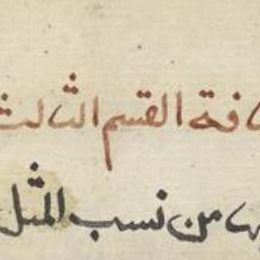 القسم الثالث
من نسب المثل